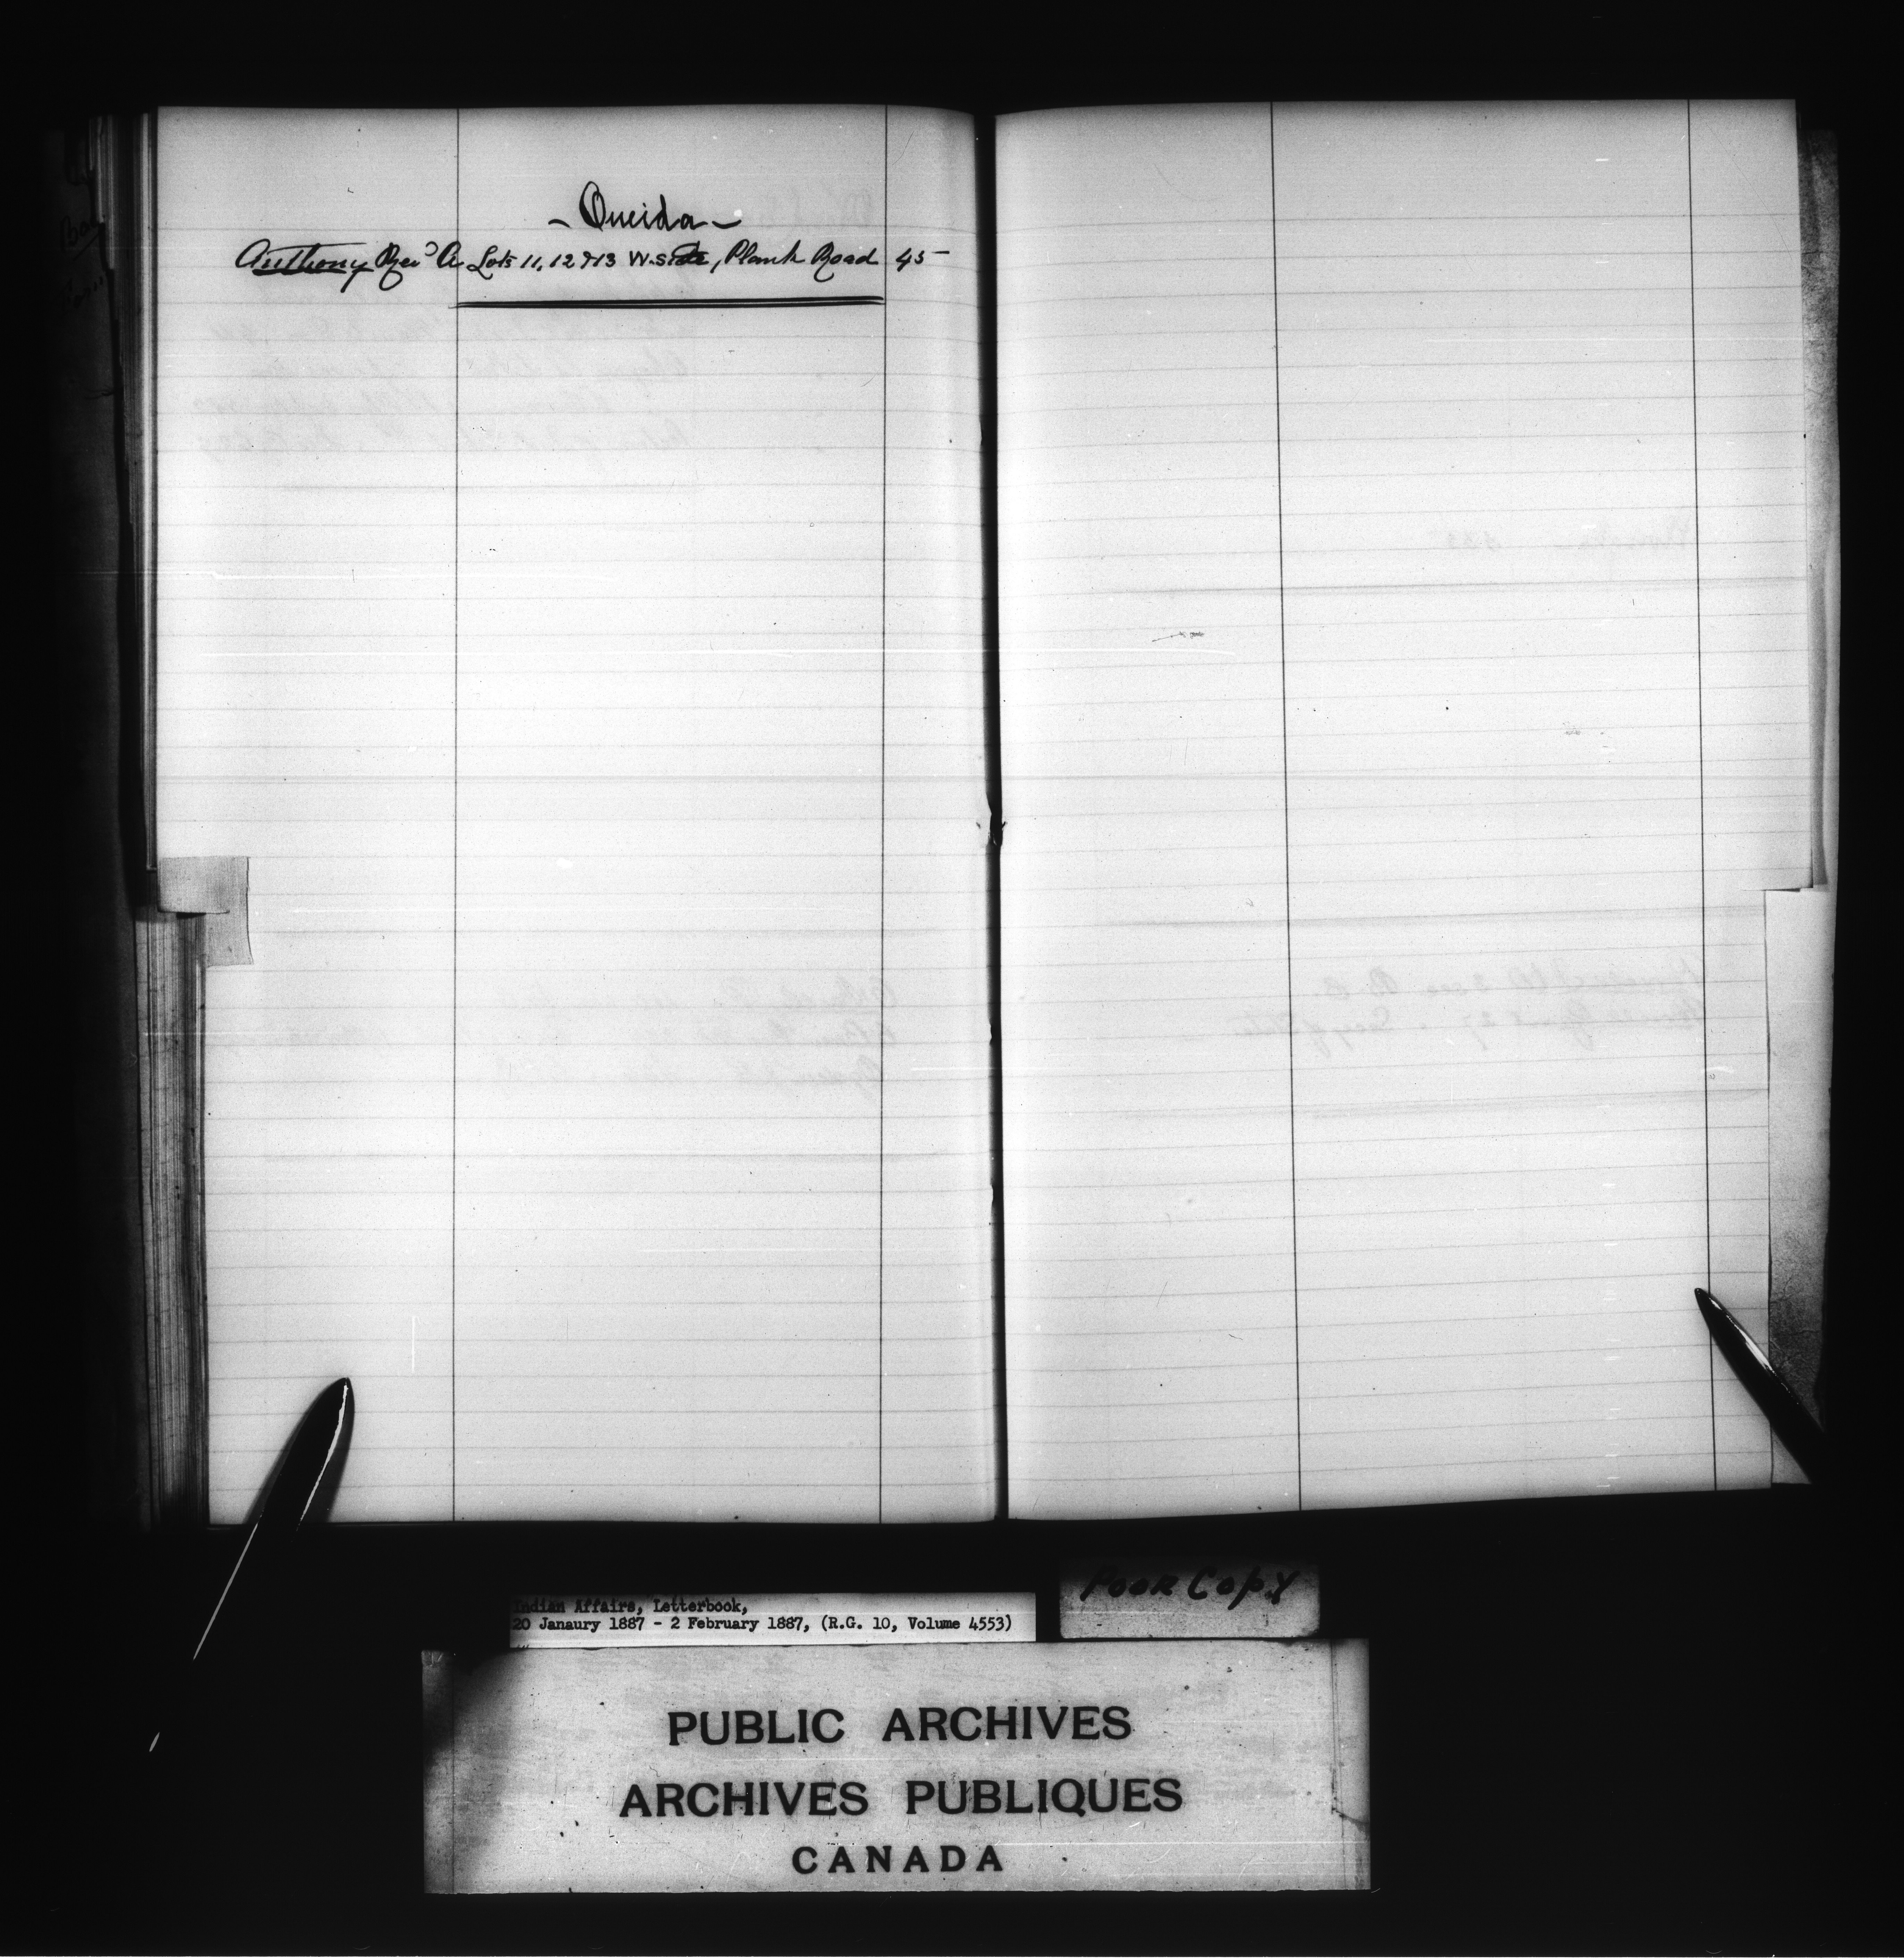 - Oneida -
Anthony Rev<sup>d</sup> A Lots 11, 12 & 13 W. Side, Plank Road 45
Poor Copy
Indian Affairs, Letterbook,
20 Janaury 1887 - 2 February 1887, (R.G. 10, Volume 4553)
PUBLIC ARCHIVES
ARCHIVES PUBLIQUES
CANADA